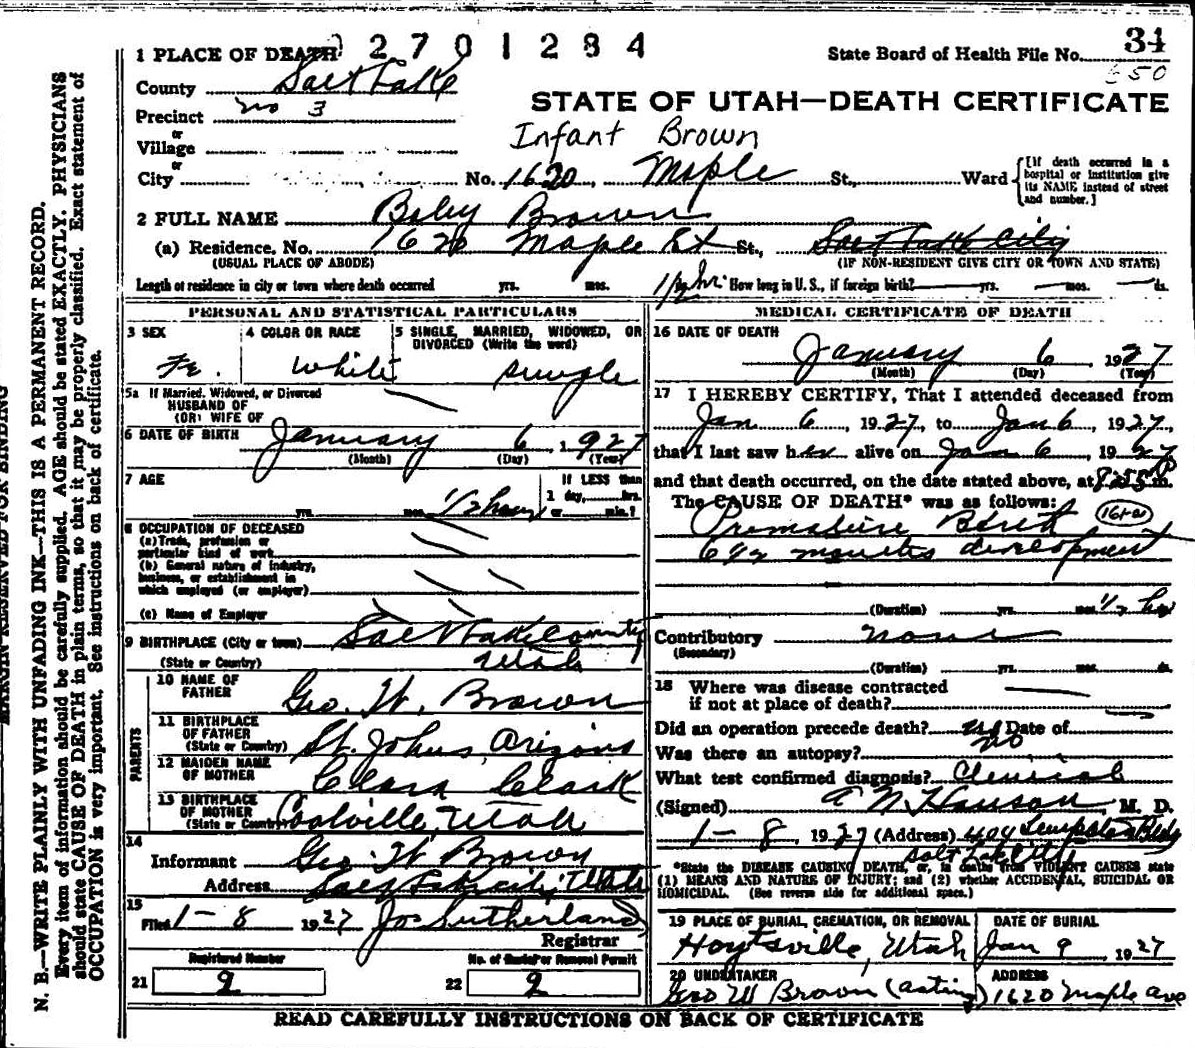 2701284
1 PLACE OF DEATH
State Board of Health File No. 34
650
County Salt Lake
STATE OF UTAH—DEATH CERTIFICATE
Precinct no 3
or
Village
Infant Brown
or
City No. 1620 Maple St., Ward
[If death occurred in a hospital or institution give its NAME instead of street and number.]
2 FULL NAME Baby Brown
(a) Residence, No. 1620 Maple St St., Salt Lake City
(USUAL PLACE OF ABODE) (IF NON-RESIDENT GIVE CITY OR TOWN AND STATE)
Length of residence in city or town where death occurred yrs. mos. 1/2 hr. How long in U. S., if foreign birth? yrs. mos. ds.
PERSONAL AND STATISTICAL PARTICULARS
3 SEX 4 COLOR OR RACE 5 SINGLE, MARRIED, WIDOWED, OR DIVORCED (Write the word)
Fe. White single
5a If Married, Widowed, or Divorced
HUSBAND OF
(OR) WIFE OF
6 DATE OF BIRTH January 6, 1927
(Month) (Day) (Year)
7 AGE If LESS than
1 day, hrs.
yrs. mos. 1/2 hour or min.?
8 OCCUPATION OF DECEASED
(a) Trade, profession or
particular kind of work
(b) General nature of industry,
business, or establishment in
which employed (or employer)
(c) Name of Employer
9 BIRTHPLACE (City or town) Salt Lake County
(State or Country) Utah
PARENTS
10 NAME OF FATHER Geo. W. Brown
11 BIRTHPLACE OF FATHER (State or Country) St. Johns, Arizona
12 MAIDEN NAME OF MOTHER Clara Clark
13 BIRTHPLACE OF MOTHER (State or Country) Coalville, Utah
14
Informant Geo. W Brown
Address Salt Lake City Utah
15
Filed 1-8 1927 Jos Sutherland
Registrar
Registered Number No. of Burial or Removal Permit
21 9 22 9
MEDICAL CERTIFICATE OF DEATH
16 DATE OF DEATH
January 6 1927
(Month) (Day) (Year)
17 I HEREBY CERTIFY, That I attended deceased from
Jan 6, 1927, to Jan 6, 1927,
that I last saw her alive on Jan 6, 1927
and that death occurred, on the date stated above, at 8:25 P m.
The CAUSE OF DEATH* was as follows:
Premature Birth
6 1/2 months development
(Duration) yrs. mos. 1/2 hr
Contributory none
(Secondary)
(Duration) yrs. mos. ds.
18 Where was disease contracted
if not at place of death?
Did an operation precede death? no Date of
Was there an autopsy? no
What test confirmed diagnosis? Clinical
(Signed) N. Hanson, M. D.
1-8, 1927 (Address) 404 Templeton Bldg
Salt Lake City
*State the DISEASE CAUSING DEATH, or, in deaths from VIOLENT CAUSES state
(1) MEANS AND NATURE OF INJURY; and (2) whether ACCIDENTAL, SUICIDAL OR
HOMICIDAL. (See reverse side for additional space.)
19 PLACE OF BURIAL, CREMATION, OR REMOVAL DATE OF BURIAL
Hoytsville, Utah Jan 9, 1927
20 UNDERTAKER ADDRESS
Geo W Brown (acting) 1620 Maple Ave
READ CAREFULLY INSTRUCTIONS ON BACK OF CERTIFICATE
MARGIN RESERVED FOR BINDING
N. B.—WRITE PLAINLY WITH UNFADING INK—THIS IS A PERMANENT RECORD.
Every item of information should be carefully supplied. AGE should be stated EXACTLY. PHYSICIANS
should state CAUSE OF DEATH in plain terms, so that it may be properly classified. Exact statement of
OCCUPATION is very important. See instructions on back of certificate.